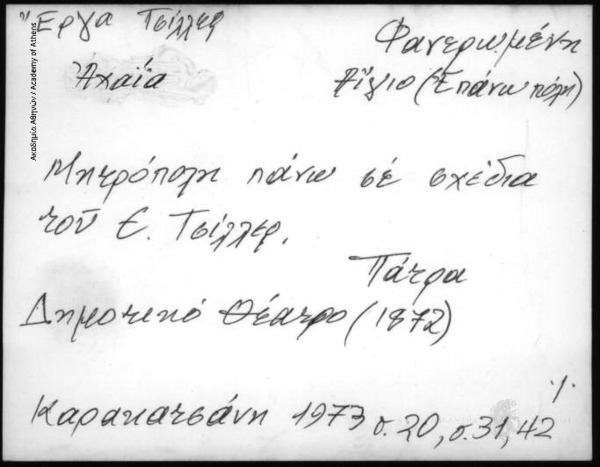 Ἔργα Τσίλλερ
Φανερωμένη
Ἀχαΐα
Αἴγιο (Ἐπάνω πόλη)
Μητρόπολη πάνω σέ σχέδια
τοῦ Ε. Τσίλλερ.
Πάτρα
Δημοτικό Θέατρο (1872)
·/·
Καρακατσάνη 1973 σ. 20, σ. 31, 42
Ακαδημία Αθηνών / Academy of Athens